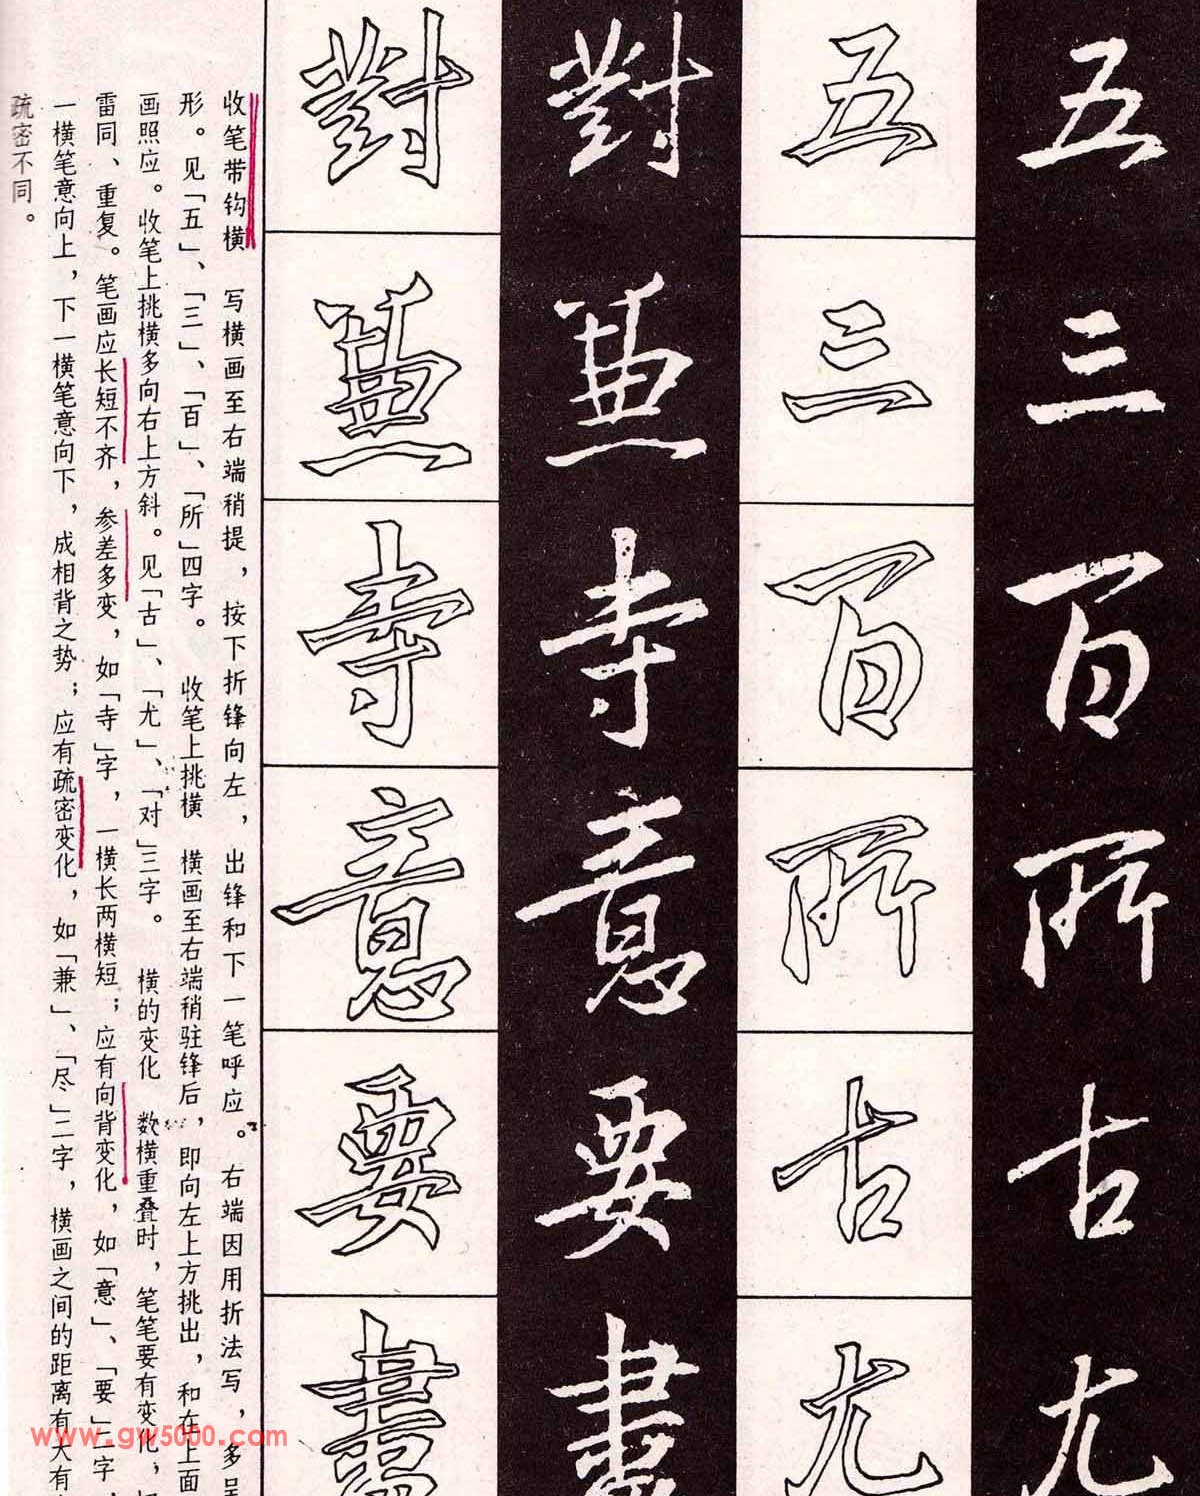 五三百所古尤
五三百所古尤
對兼寺意要盡
對兼寺意要盡
收笔带钩横　写横画至右端稍提，按下折锋向左，出锋和下一笔呼应。右端因用折法写，多呈
形。见「五」、「三」、「百」、「所」四字。　收笔上挑横　横画至右端稍驻锋后，即向左上方挑出，和在上面
画照应。收笔上挑横多向右上方斜。见「古」、「尤」、「对」三字。　横的变化　数横重叠时，笔笔要有变化，
雷同、重复。笔画应长短不齐，参差多变，如「寺」字，一横长两横短；应有向背变化，如「意」、「要」二字，
一横笔意向上，下一横笔意向下，成相背之势；应有疏密变化，如「兼」、「尽」二字，横画之间的距离有大有
疏密不同。
www.gw5000.com